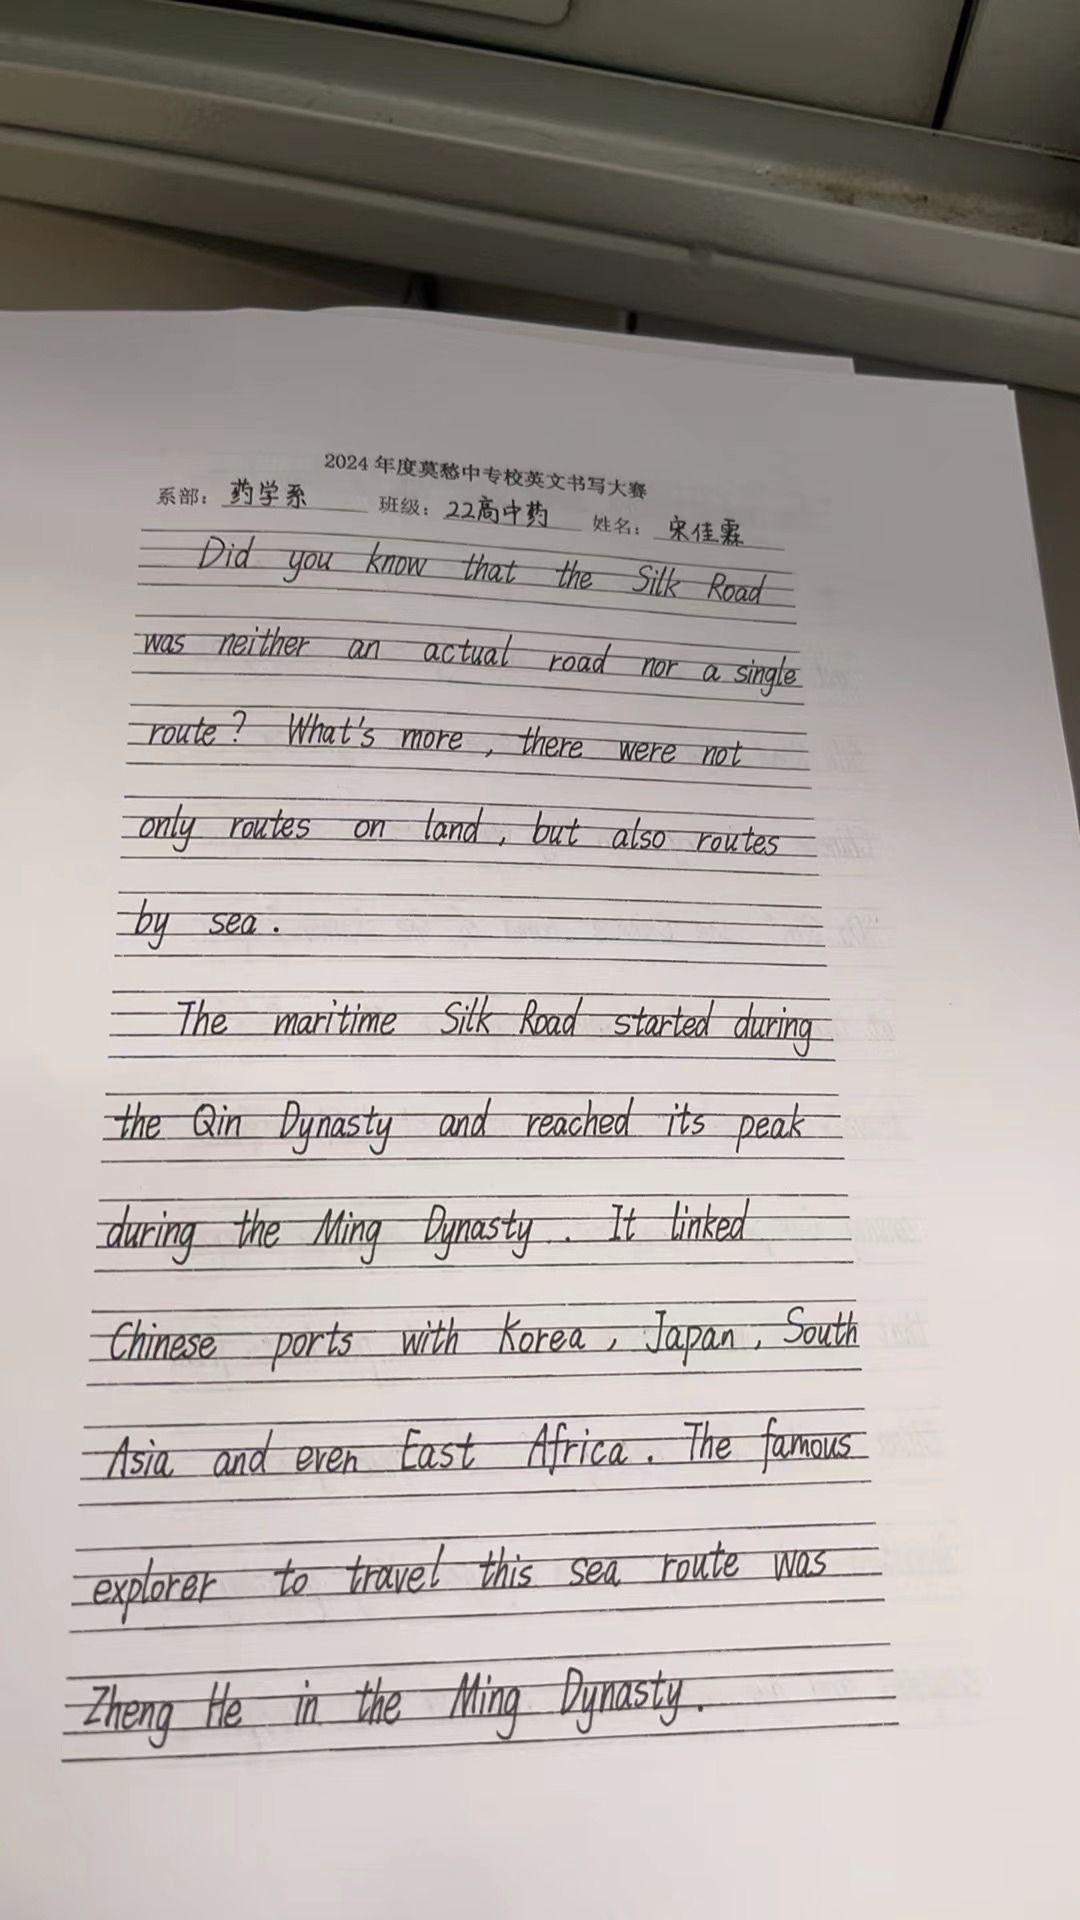 2024 年度莫愁中专校英文书写大赛
系部: 药学系 班级: 22高中药 姓名: 宋佳霖
Did you know that the Silk Road
was neither an actual road nor a single
route? What's more, there were not
only routes on land, but also routes
by sea.
The maritime Silk Road started during
the Qin Dynasty and reached its peak
during the Ming Dynasty. It linked
Chinese ports with Korea, Japan, South
Asia and even East Africa. The famous
explorer to travel this sea route was
Zheng He in the Ming Dynasty.